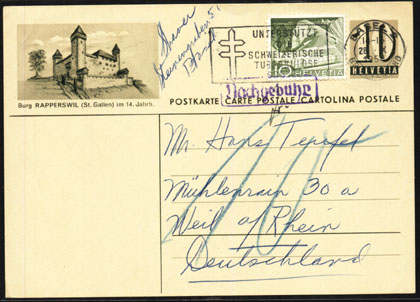 Burg RAPPERSWIL (St. Gallen) im 14. Jahrh.
Basel
UNTERSTÜTZT
SCHWEIZERISCHE
TUBERKULOSE
HELVETIA
BASEL
10
HELVETIA
POSTKARTE CARTE POSTALE CARTOLINA POSTALE
Nachgebühr
Mr. Hans
Mühlenrain 30 a
Weil a/Rhein
Deutschland